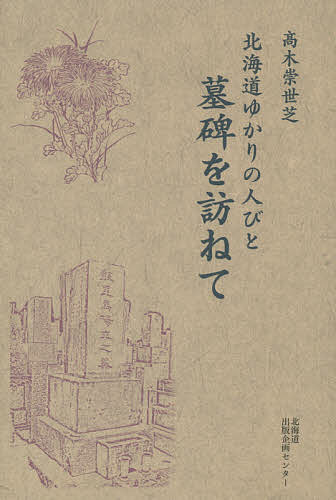 髙木崇世芝
北海道ゆかりの人びと
墓碑を訪ねて
北海道
出版企画センター